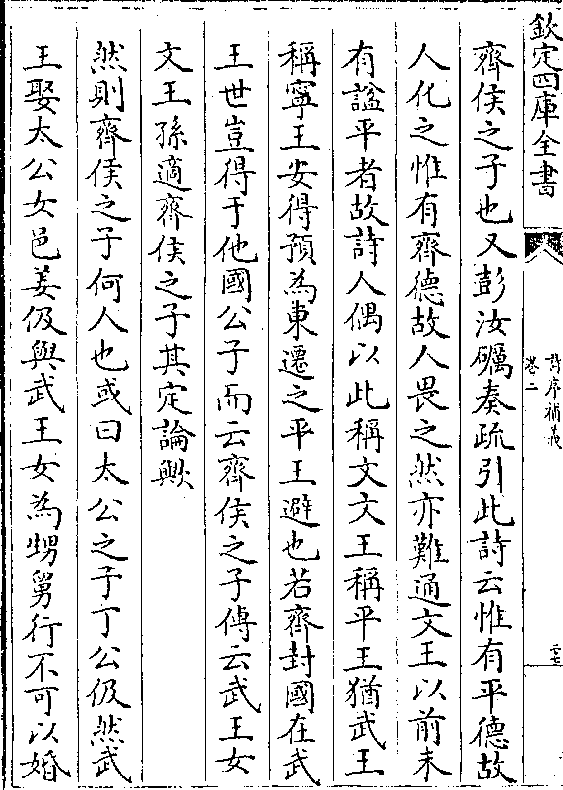 欽定四庫全書
詩序補義
卷二
二七
齊侯之子也又彭汝礪奏疏引此詩云惟有平德故
人化之惟有齊德故人畏之然亦難通文王以前未
有諡平者故詩人偶以此稱文文王稱平王猶武王
稱寧王安得預為東遷之平王避也若齊封國在武
王世豈得于他國公子而云齊侯之子傅云武王女
文王孫適齊侯之子其定論歟
然則齊侯之子何人也或曰太公之子丁公伋然武
王娶太公女邑姜伋與武王女為甥舅行不可以婚